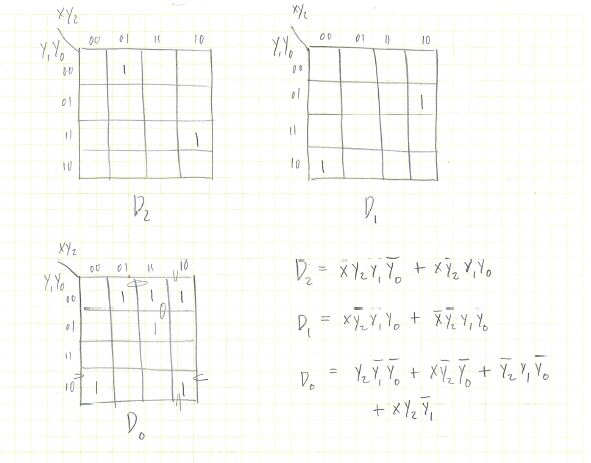 XY₂ XY₂
Y₁Y₀ 00 01 11 10 Y₁Y₀ 00 01 11 10
00 1 00
01 01 1
11 1 11
10 10 1
D₂ D₁
XY₂
Y₁Y₀ 00 01 11 10
00 1 1 1
01 1
11
10 1 1
D₀
D₂ = X̅Y₂Y̅₁Y̅₀ + XY̅₂Y₁Y₀
D₁ = XY̅₂Y̅₁Y₀ + X̅Y̅₂Y₁Y̅₀
D₀ = Y₂Y̅₁Y̅₀ + XY̅₂Y̅₀ + Y̅₂Y₁Y̅₀
+ XY₂Y̅₁